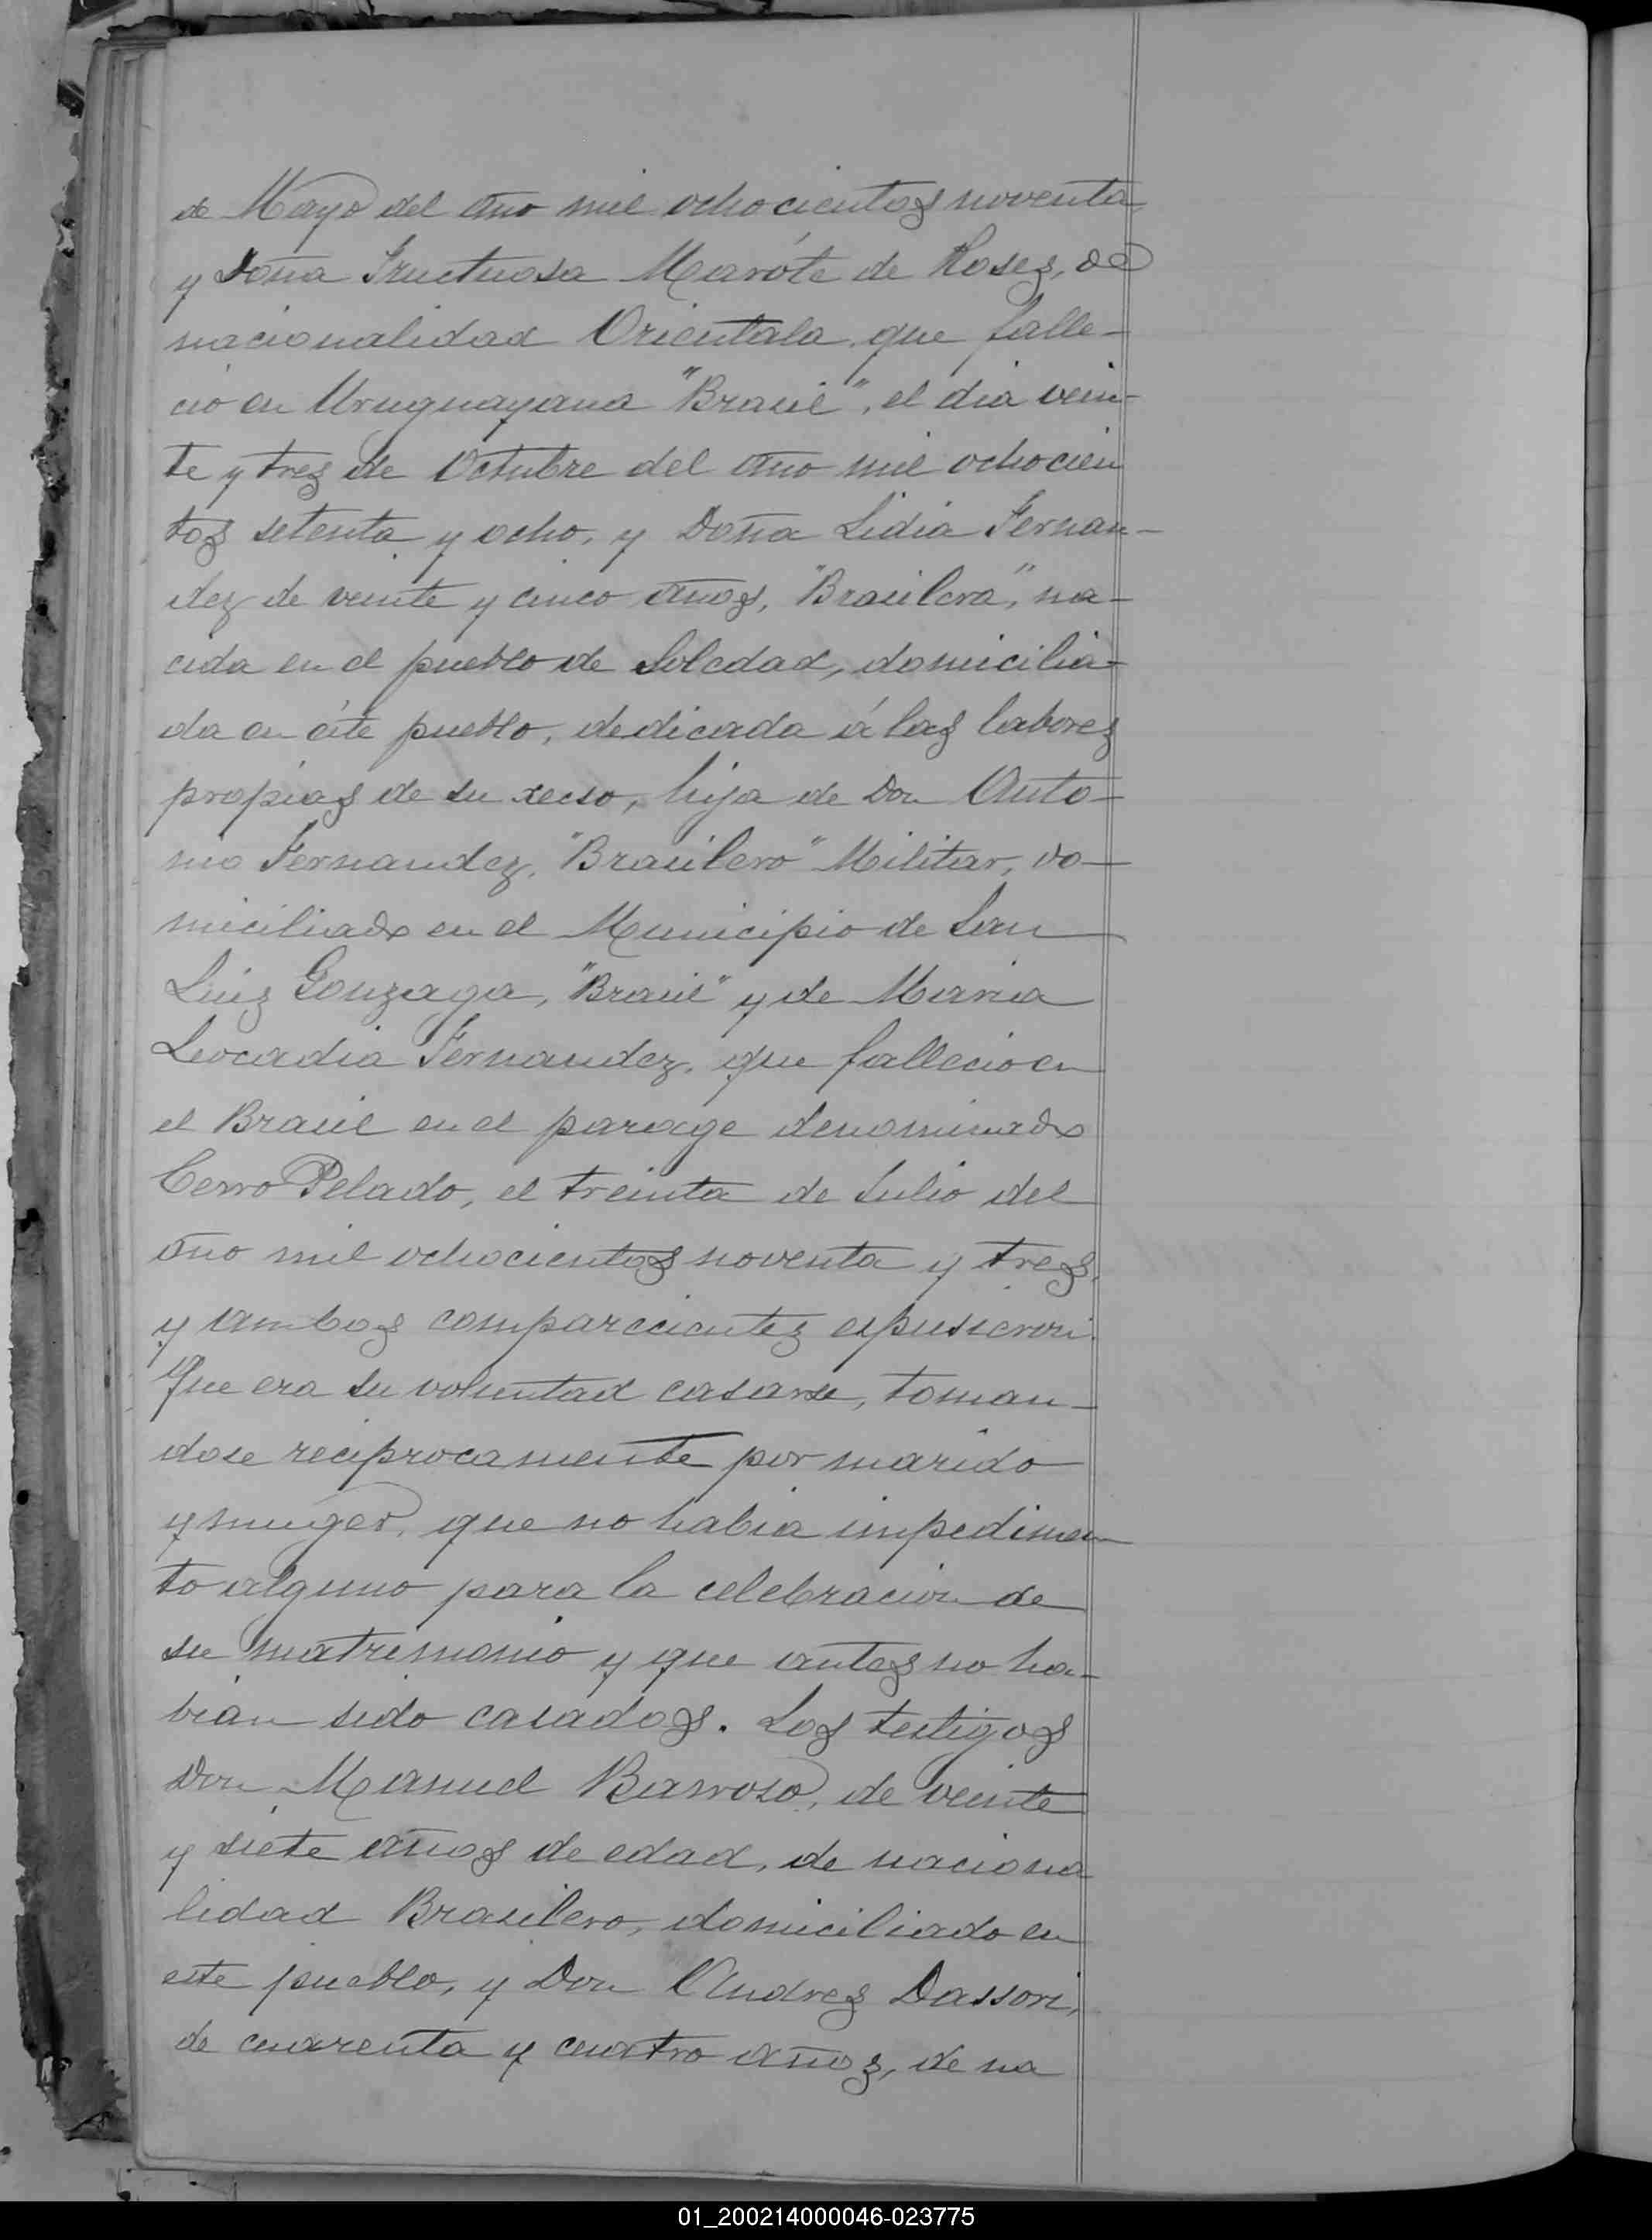 de Mayo del año mil ochocientos noventa
y Doña Fructuosa Maróte de Roses, de
nacionalidad Orientala que falle-
ció en Uruguayana "Brasil", el dia vein-
te y tres de Octubre del año mil ochocien
tos setenta y ocho, y Doña Lidia Fernan-
dez de veinte y cinco años, "Brasilera", na-
cida en el pueblo de Soledad, domicilia-
da en éste pueblo, dedicada á las labores
propias de su secso, hija de Don Anto-
nio Fernandez, "Brasilero" Militar, do-
miciliado en el Municipio de San
Luiz Gonzaga, "Brasil" y de Maria
Leocadia Fernandez, que fallecio en
el Brasil en el parage denominado
Cerro Pelado, el treinta de Julio del
año mil ochocientos noventa y tres,
y ambos comparecientes espusieron:
Que era su voluntad casarse, toman-
dose reciprocamente por marido
y muger, que no habia impedimen
to alguno para la celebracion de
su matrimonio y que antes no ha-
bian sido casados. Los testigos
Don Manuel Barroso, de veinte
y siete años de edad, de naciona
lidad Brasilero, domiciliado en
este pueblo, y Don Andres Dassori,
de cuarenta y cuatro años, de na
01_200214000046-023775